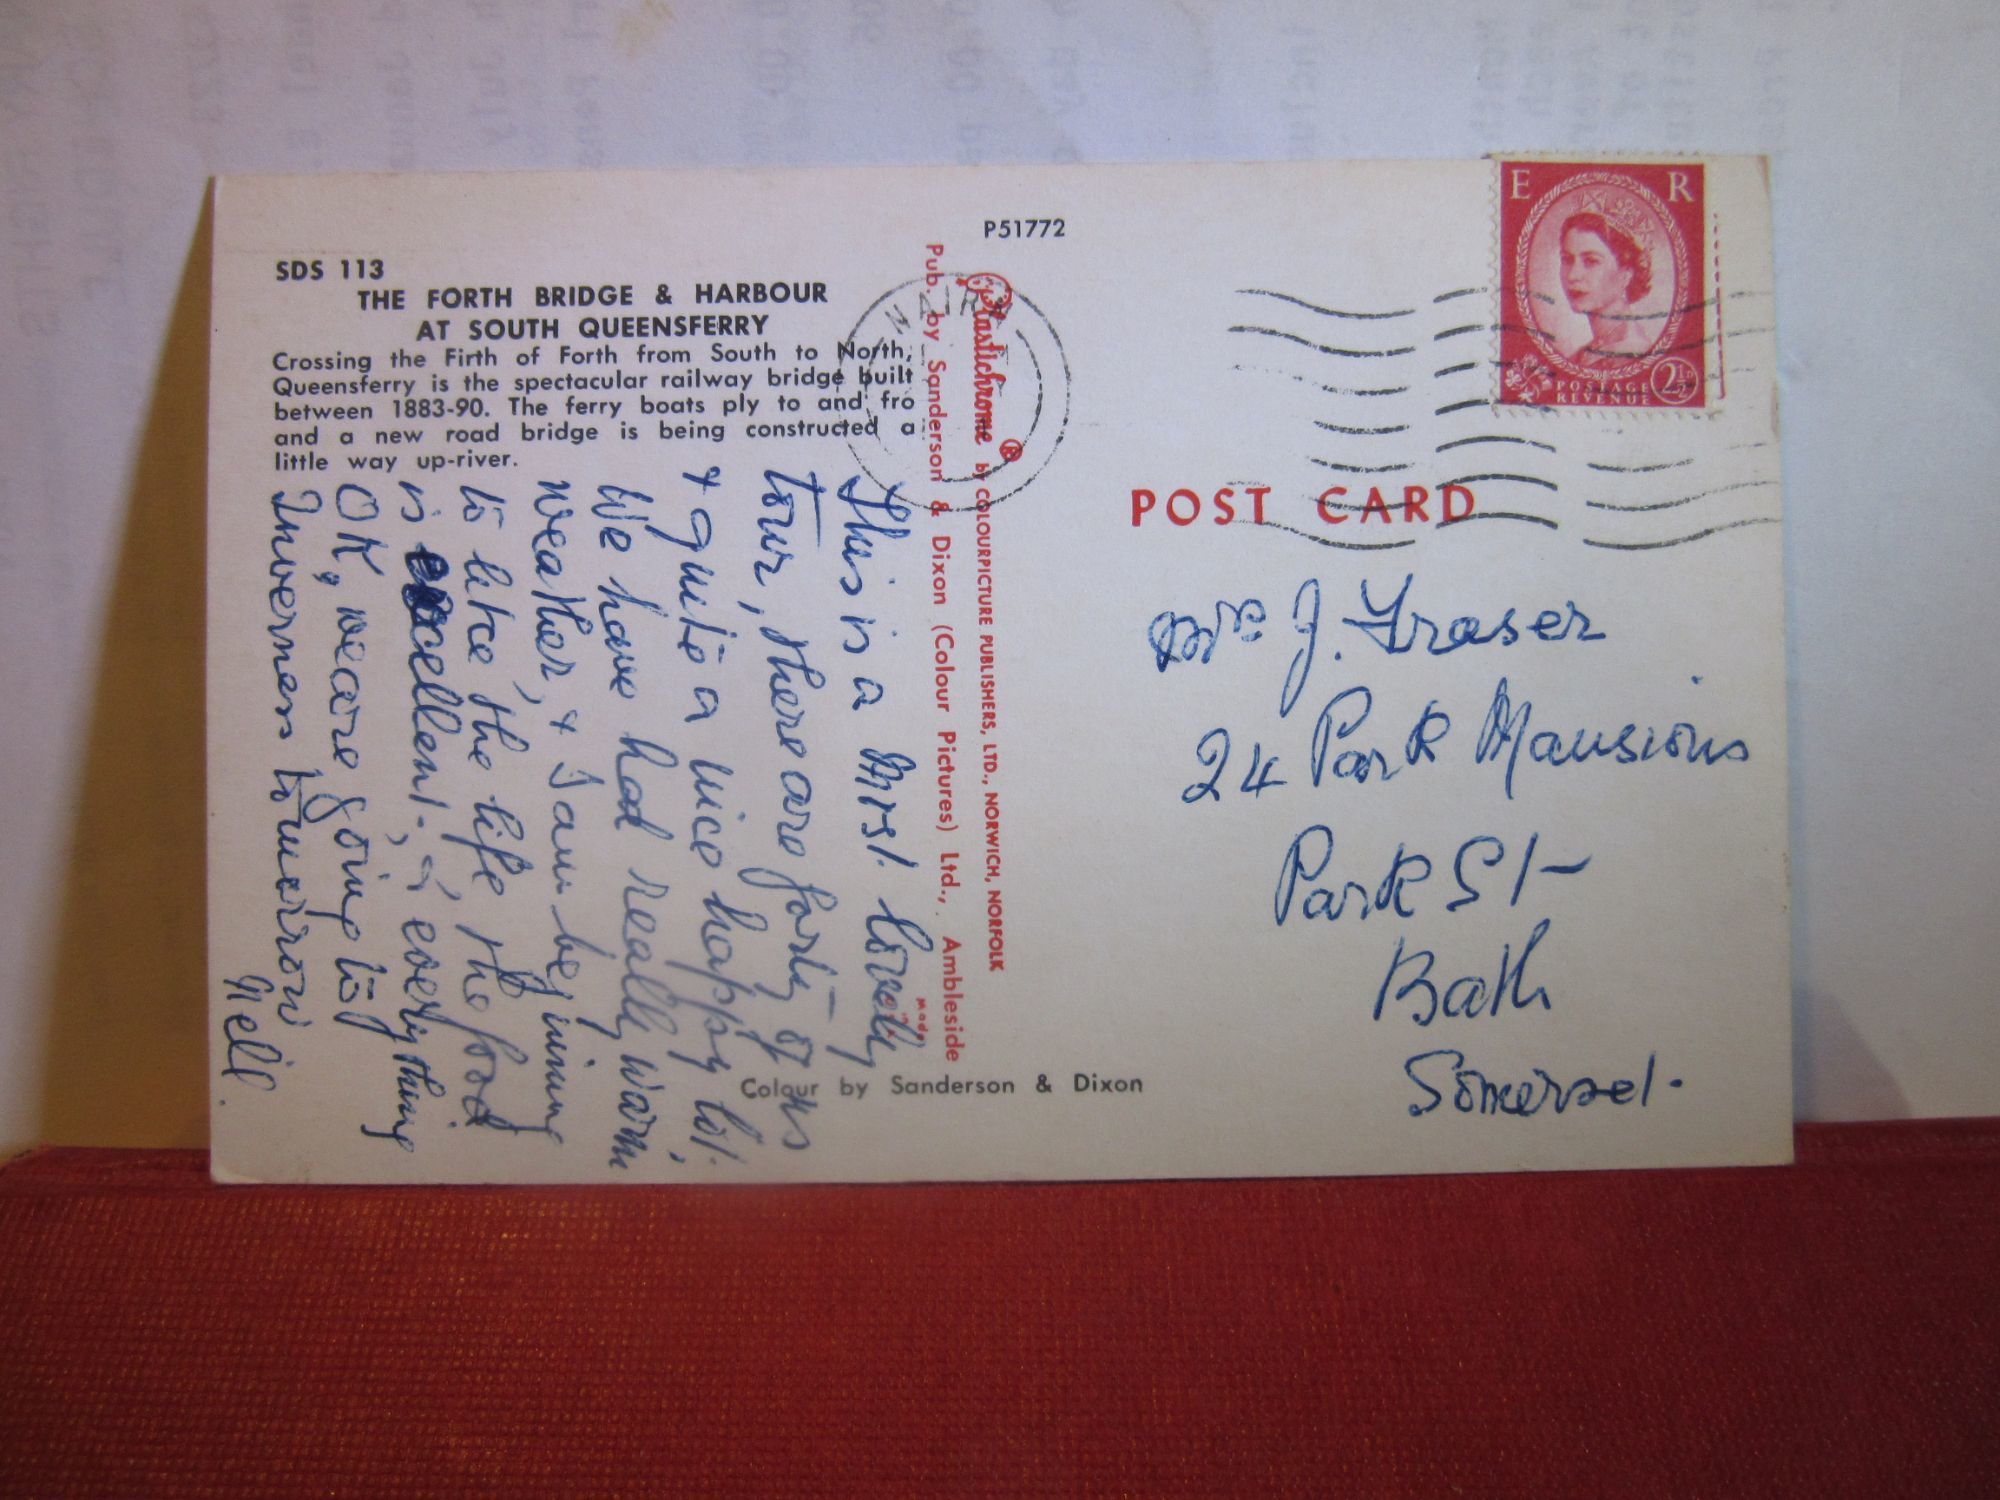 P51772
SDS 113
THE FORTH BRIDGE & HARBOUR
AT SOUTH QUEENSFERRY
Crossing the Firth of Forth from South to North,
Queensferry is the spectacular railway bridge built
between 1883-90. The ferry boats ply to and fro
and a new road bridge is being constructed a
little way up-river.
This is a Mrst. lovely
tour, there are forty of us
& quite a nice happy lot.
We have had really warm,
weather, & I am beginning
to like the life, the food
is excellent, everything
OK, we are going to
Inverness tomorrow
Nell.
Pub. by Sanderson & Dixon (Colour Pictures) Ltd., Ambleside
Plastichrome ® by COLOURPICTURE PUBLISHERS, LTD., NORWICH, NORFOLK
Colour by Sanderson & Dixon
NAIRN
E R
POSTAGE
REVENUE
2½D
POST CARD
Mrs. J. Fraser
24 Park Mansions
Park St
Bath
Somerset.